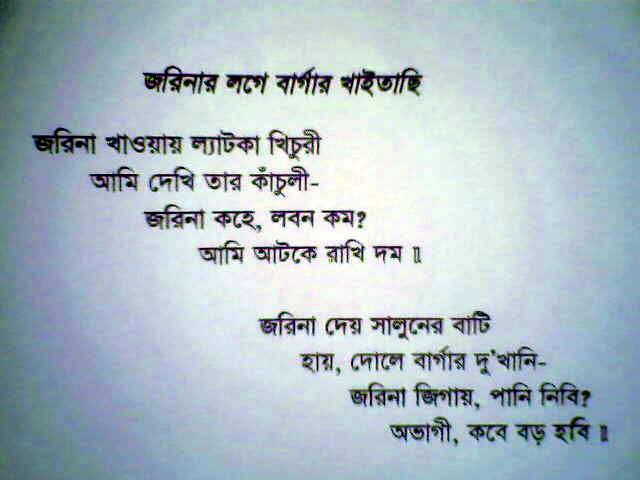 জরিনার লগে বার্গার খাইতাছি
জরিনা খাওয়ায় ল্যাটকা খিচুরী
আমি দেখি তার কাঁচুলী-
জরিনা কহে, লবন কম?
আমি আটকে রাখি দম ॥
জরিনা দেয় সালুনের বাটি
হায়, দোলে বার্গার দু'খানি-
জরিনা জিগায়, পানি নিবি?
অভাগী, কবে বড় হবি ॥